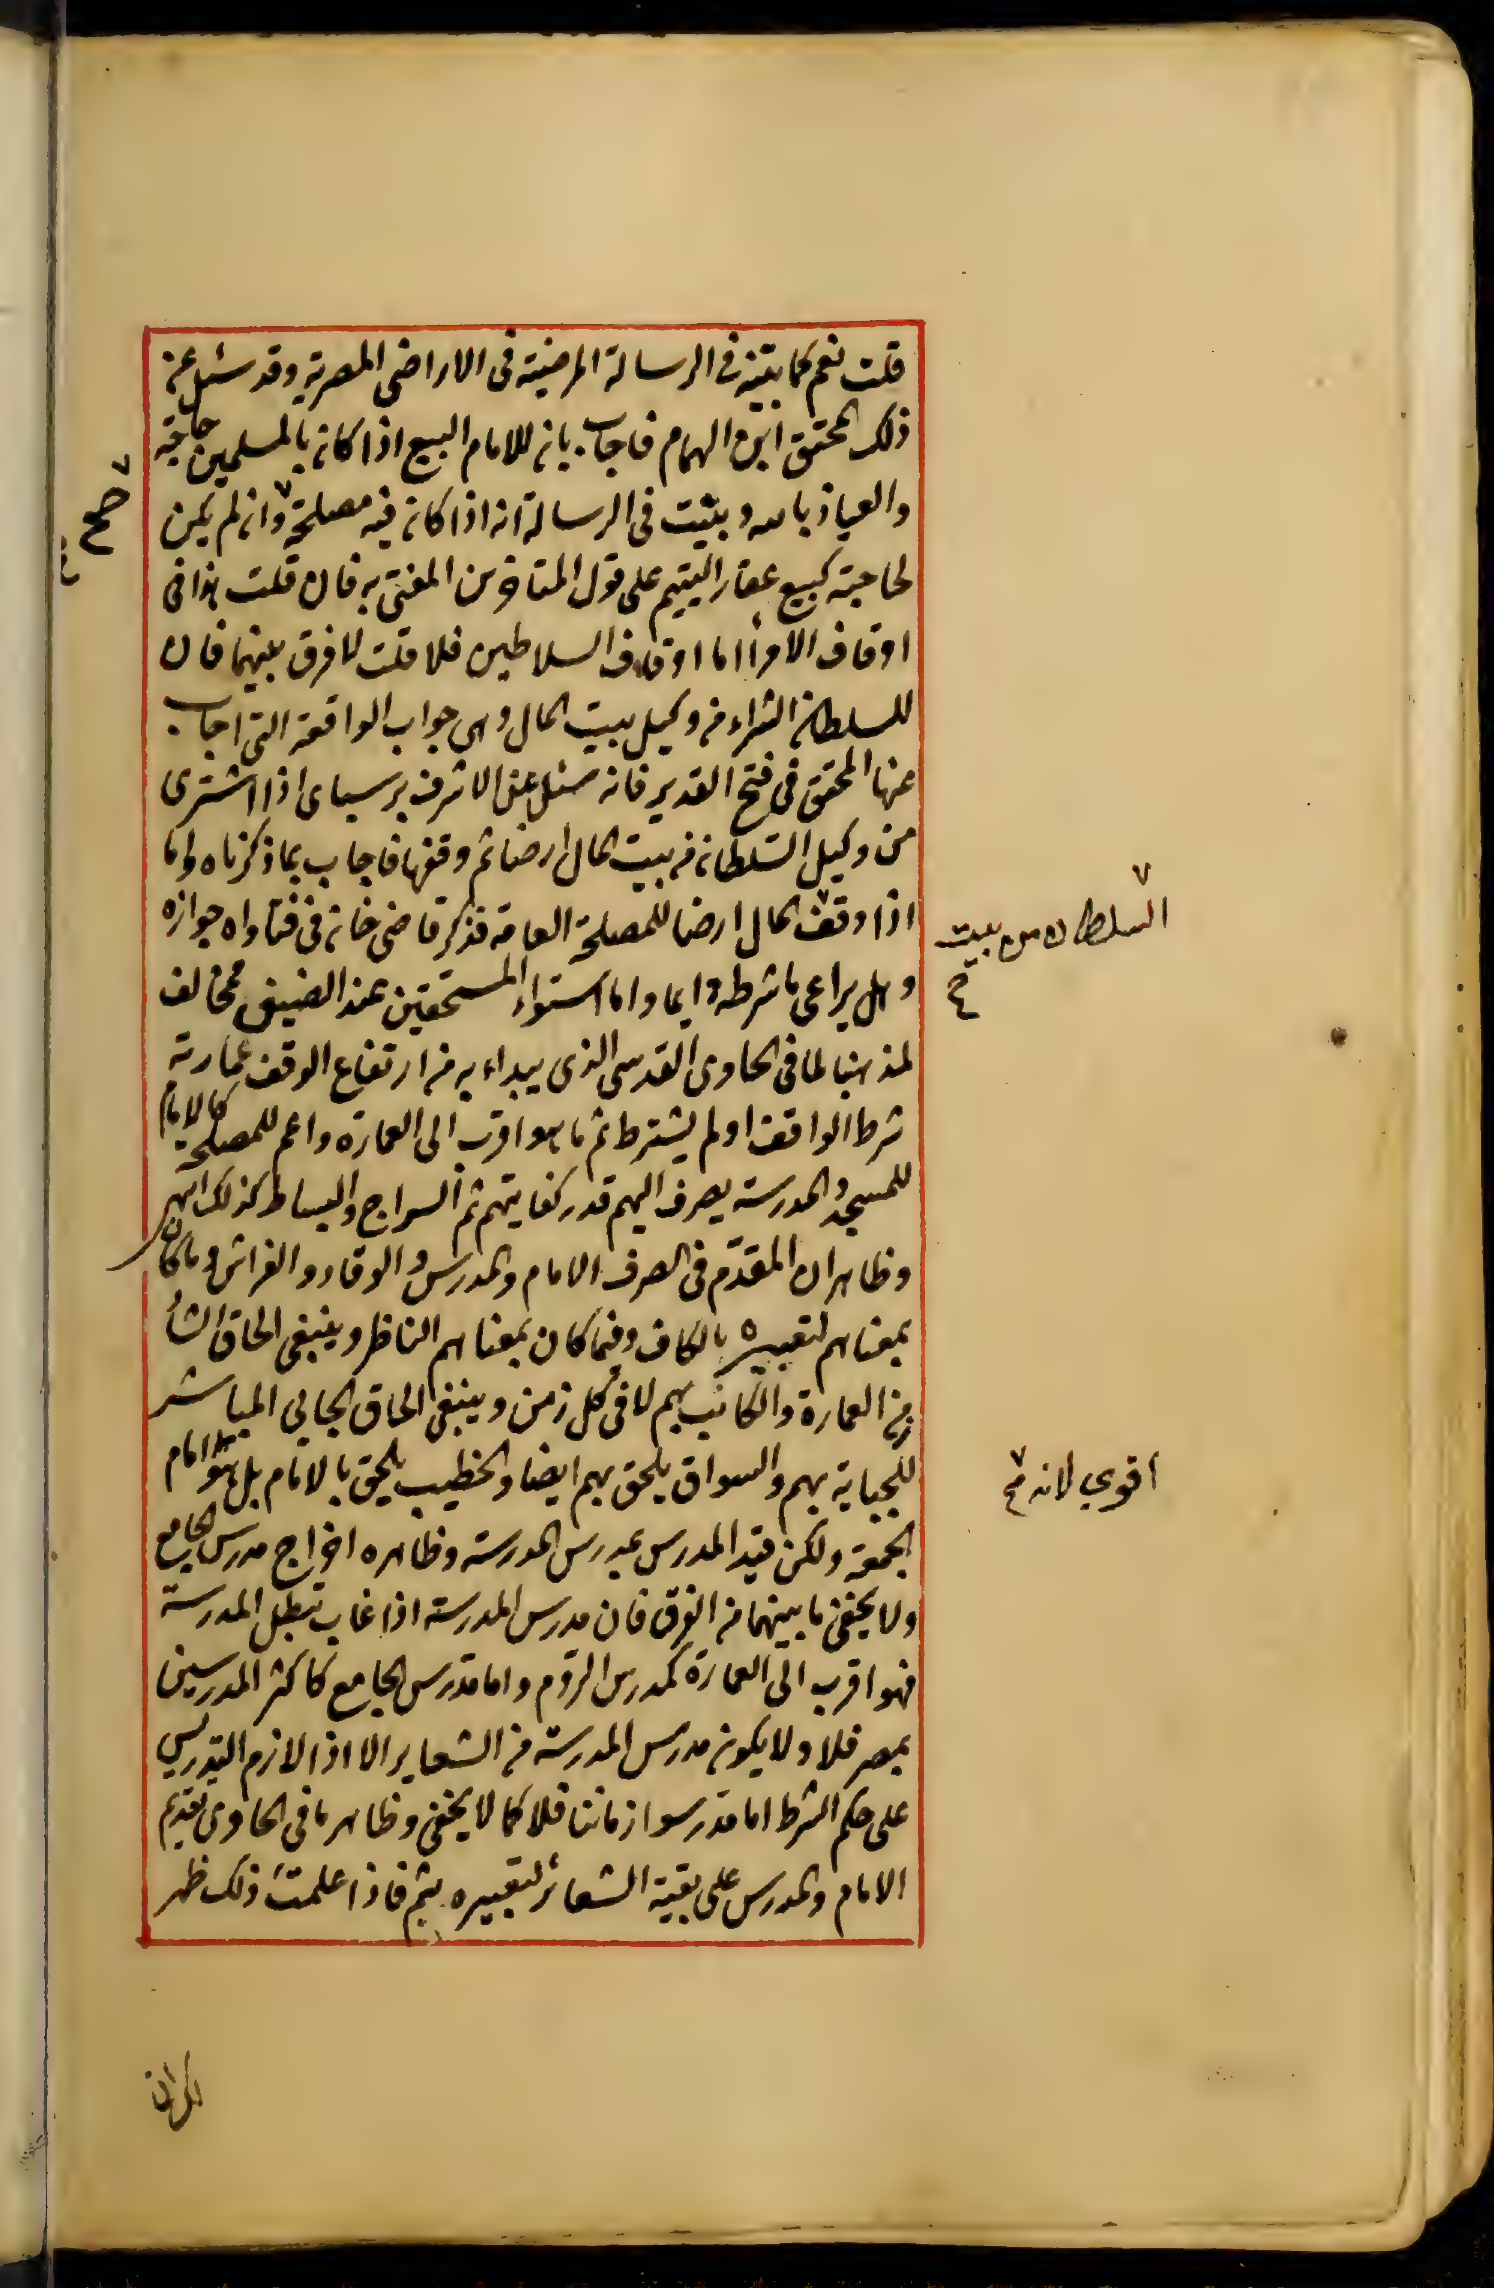 قلت نعم كما بينته في الرسالة المرضية في الاراضي المصرية وقد سئل عن
ذلك المحقق ابن الهمام فاجاب بان للامام البيع اذا كان بالمسلمين حاجة
والعياذ بالله وبينت في الرسالة انه اذا كان فيه مصلحة وان لم يكن
لحاجة كبيع عقار اليتيم على قول المتاخرين المفتى به فان قلت هذا في
اوقاف الامرأ اما اوقاف السلاطين فلا قلت لا فرق بينهما فان
للسلطان الشراء من وكيل بيت المال وهي جواب الواقعة التي اجاب
عنها المحقق في فتح القدير فانه سئل عن الاشرف برسباى اذا اشترى
من وكيل السلطان من بيت المال ارضا ثم وقفها فاجاب بما ذكرناه واما
اذا وقف المال ارضا للمصلحة العامة فذكر قاضى خان في فتاواه جوازه
السلطان من بيت
وهل يراعى ما شرطه دايما واما استواء المستحقين عند الضيق فمخالف
لمذهبنا لما في الحاوى القدسى الذى يبداء به من ارتفاع الوقف عمارته
شرط الواقف او لم يشترط ثم ما هو اقرب الى العمارة واعم للمصلحة كالامام
للمسجد والمدرسة يصرف اليهم قدر كفايتهم ثم السراج والبساط كذلك انتهى
وظاهر ان المقدم في الصرف الامام والمدرس والوقاد والفراش وما كان
بمعناهم لتعبيره بالكاف وفما كان بمعناهم الناظر وينبغى الحاق الشأ
زمن العمارة والكاتب بهم لا في كل زمن وينبغى الحاق الجابي المباشر
للجباية بهم والسواق يلحق بهم ايضا والخطيب يلحق بالامام بل هو امام
اقوي لانه
الجمعة ولكن قيد المدرس بمدرس المدرسة وظاهره اخراج مدرس الجامع
ولا يخفى ما بينهما من الفرق فان مدرس المدرسة اذا غاب تبطل المدرسة
فهو اقرب الى العمارة كمدرس الروم واما مدرس الجامع كاكثر المدرسين
بمصر فلا ولا يكون مدرس المدرسة من الشعاير الا اذا لازم التدريس
على حكم الشرط اما مدرسوا زماننا فلا كما لا يخفى وظاهر ما في الحاوى تقديم
الامام والمدرس على بقية الشعائر لتعبيره بثم فاذا علمت ذلك ظهر